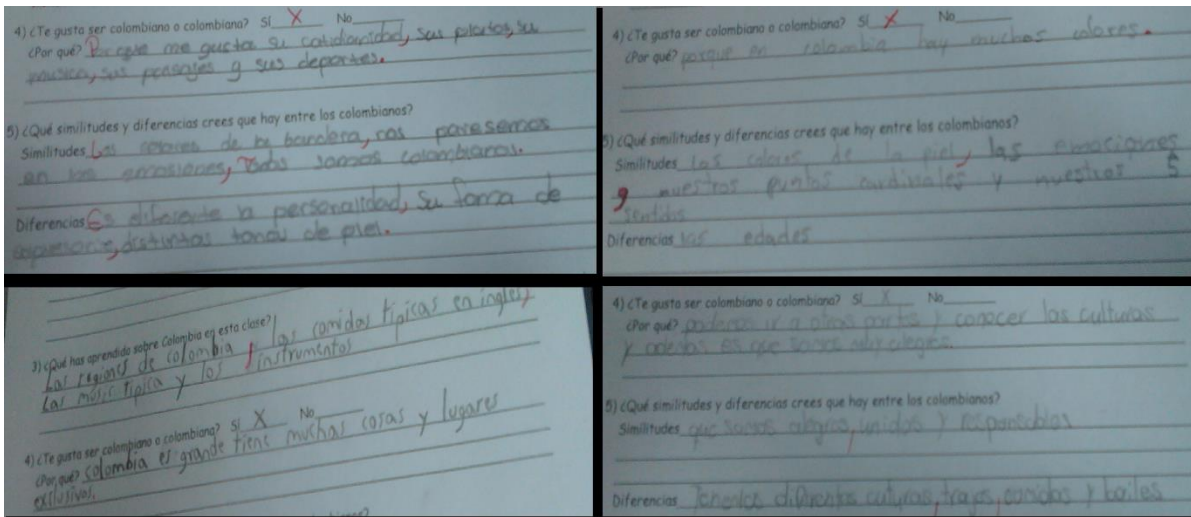 4) ¿Te gusta ser colombiano o colombiana? Sí X No
¿Por qué? Porque me gusta su cotidianidad, sus platos, su
musica, sus paesajes y sus deportes.
5) ¿Qué similitudes y diferencias crees que hay entre los colombianos?
Similitudes Los colores de la bandera, nos paresemos
en las emosiones, todos somos colombianos.
Diferencias Es diferente la personalidad, su forma de
expresarse, distintas tonos de piel.
4) ¿Te gusta ser colombiano o colombiana? Sí X No
¿Por qué? porque en colombia hay muchos colores.
5) ¿Qué similitudes y diferencias crees que hay entre los colombianos?
Similitudes Los colores de la piel, las emociones
y nuestros puntos cardinales y nuestros 5
sentidos
Diferencias las edades
3) ¿Qué has aprendido sobre Colombia en esta clase?
Las regiones de colombia, las comidas típicas en ingles,
Las músic tipica y los instrumentos
4) ¿Te gusta ser colombiano o colombiana? Sí X No
¿Por qué? colombia es grande tiene muchas cosas y lugares
exclusivos.
4) ¿Te gusta ser colombiano o colombiana? Sí X No
¿Por qué? podemos ir a otras partes y conocer las culturas
y es que somos muy alegres.
5) ¿Qué similitudes y diferencias crees que hay entre los colombianos?
Similitudes que somos alegres, unidos y responsables
Diferencias Tenemos diferentes culturas, trajes, comidas y bailes